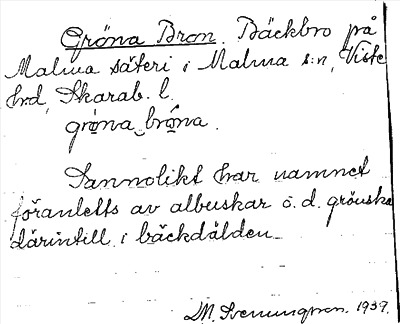 Gröna Bron. Bäckbro på
Malma säteri i Malma s:n, Viste
hrd, Skarab. l.
gröna bröna.
Sannolikt har namnet
föranletts av albuskar o. d. grönska
därintill i bäckdälden
M. Svenungsson. 1939.